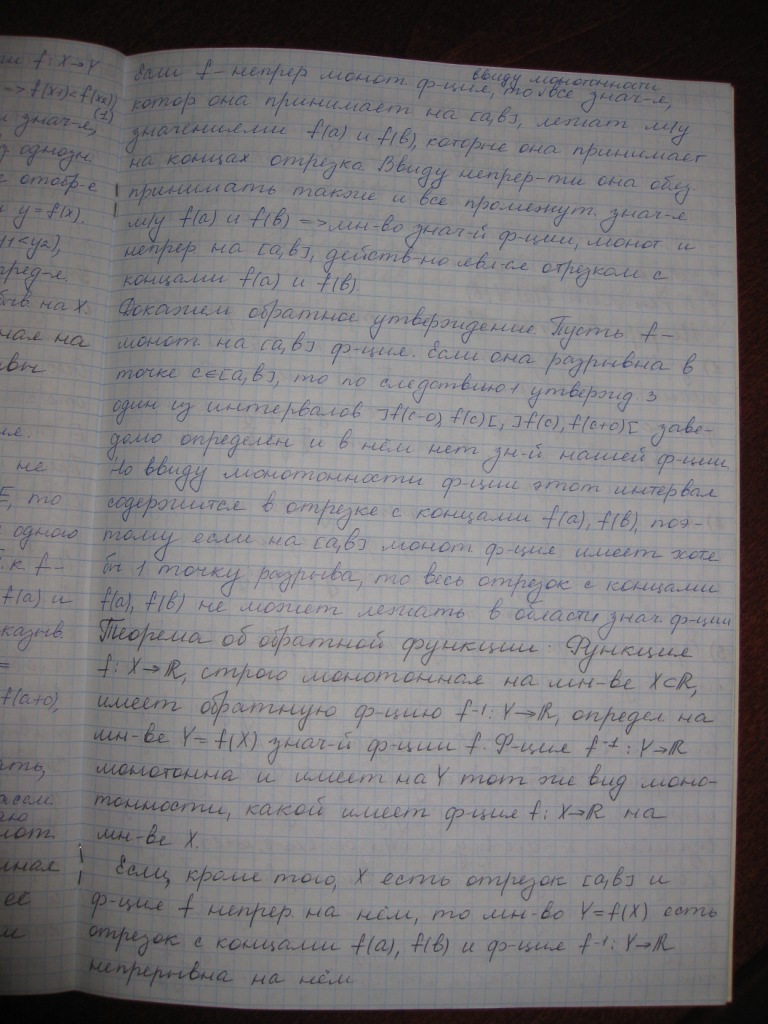 ии f: X→Y
=> f(x1)<f(x2),
(1)
и знач-я,
однозн.
отобр-е
y=f(x).
y1<y2),
пред-я.
на X.
ная на
ия.
не
то
одного
т.к. f-
f(a) и
казыв.
=
f(a+0),
ать,
рассм.
аю
лная
её
м
Если f - непрер монот ф-ция, то ввиду монотонности все знач-я,
котор она принимает на [a,b], лежат м/у
значениями f(a) и f(b), которые она принимает
на концах отрезка Ввиду непрер-ти она обяз.
принимать также и все промежут. знач-я
м/у f(a) и f(b) => мн-во знач-й ф-ции, монот и
непрер на [a,b], действ-но явл-ся отрезком с
концами f(a) и f(b)
Докажем обратное утверждение. Пусть f -
монот. на [a,b] ф-ция. Если она разрывна в
точке c∈[a,b], то по следствию 1 утвержд. 3
один из интервалов ]f(c-0), f(c)[, ]f(c), f(c+0)[ заве-
домо определен и в нём нет зн-й нашей ф-ции
Но ввиду монотонности ф-ции этот интервал
содержится в отрезке с концами f(a), f(b), поэ-
тому если на [a,b] монот ф-ция имеет хоте
бы 1 точку разрыва, то весь отрезок с концами
f(a), f(b) не может лежать в области знач. ф-ции
Теорема об обратной функции: Функция
f: X→ℝ, строго монотонная на мн-ве X⊂ℝ,
имеет обратную ф-цию f⁻¹: Y→ℝ, определ на
мн-ве Y=f(X) знач-й ф-ции f. Ф-ция f⁻¹: Y→ℝ
монотонна и имеет на Y тот же вид моно-
тонности, какой имеет ф-ция f: X→ℝ на
мн-ве X.
Если, кроме того, X есть отрезок [a,b] и
ф-ция f непрер. на нём, то мн-во Y=f(X) есть
отрезок с концами f(a), f(b) и ф-ция f⁻¹: Y→ℝ
непрерывна на нём